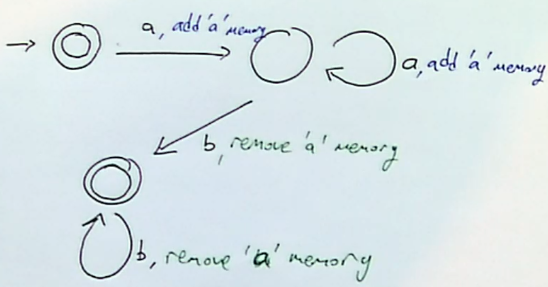 a, add 'a' memory
a, add 'a' memory
b, remove 'a' memory
b, remove 'a' memory